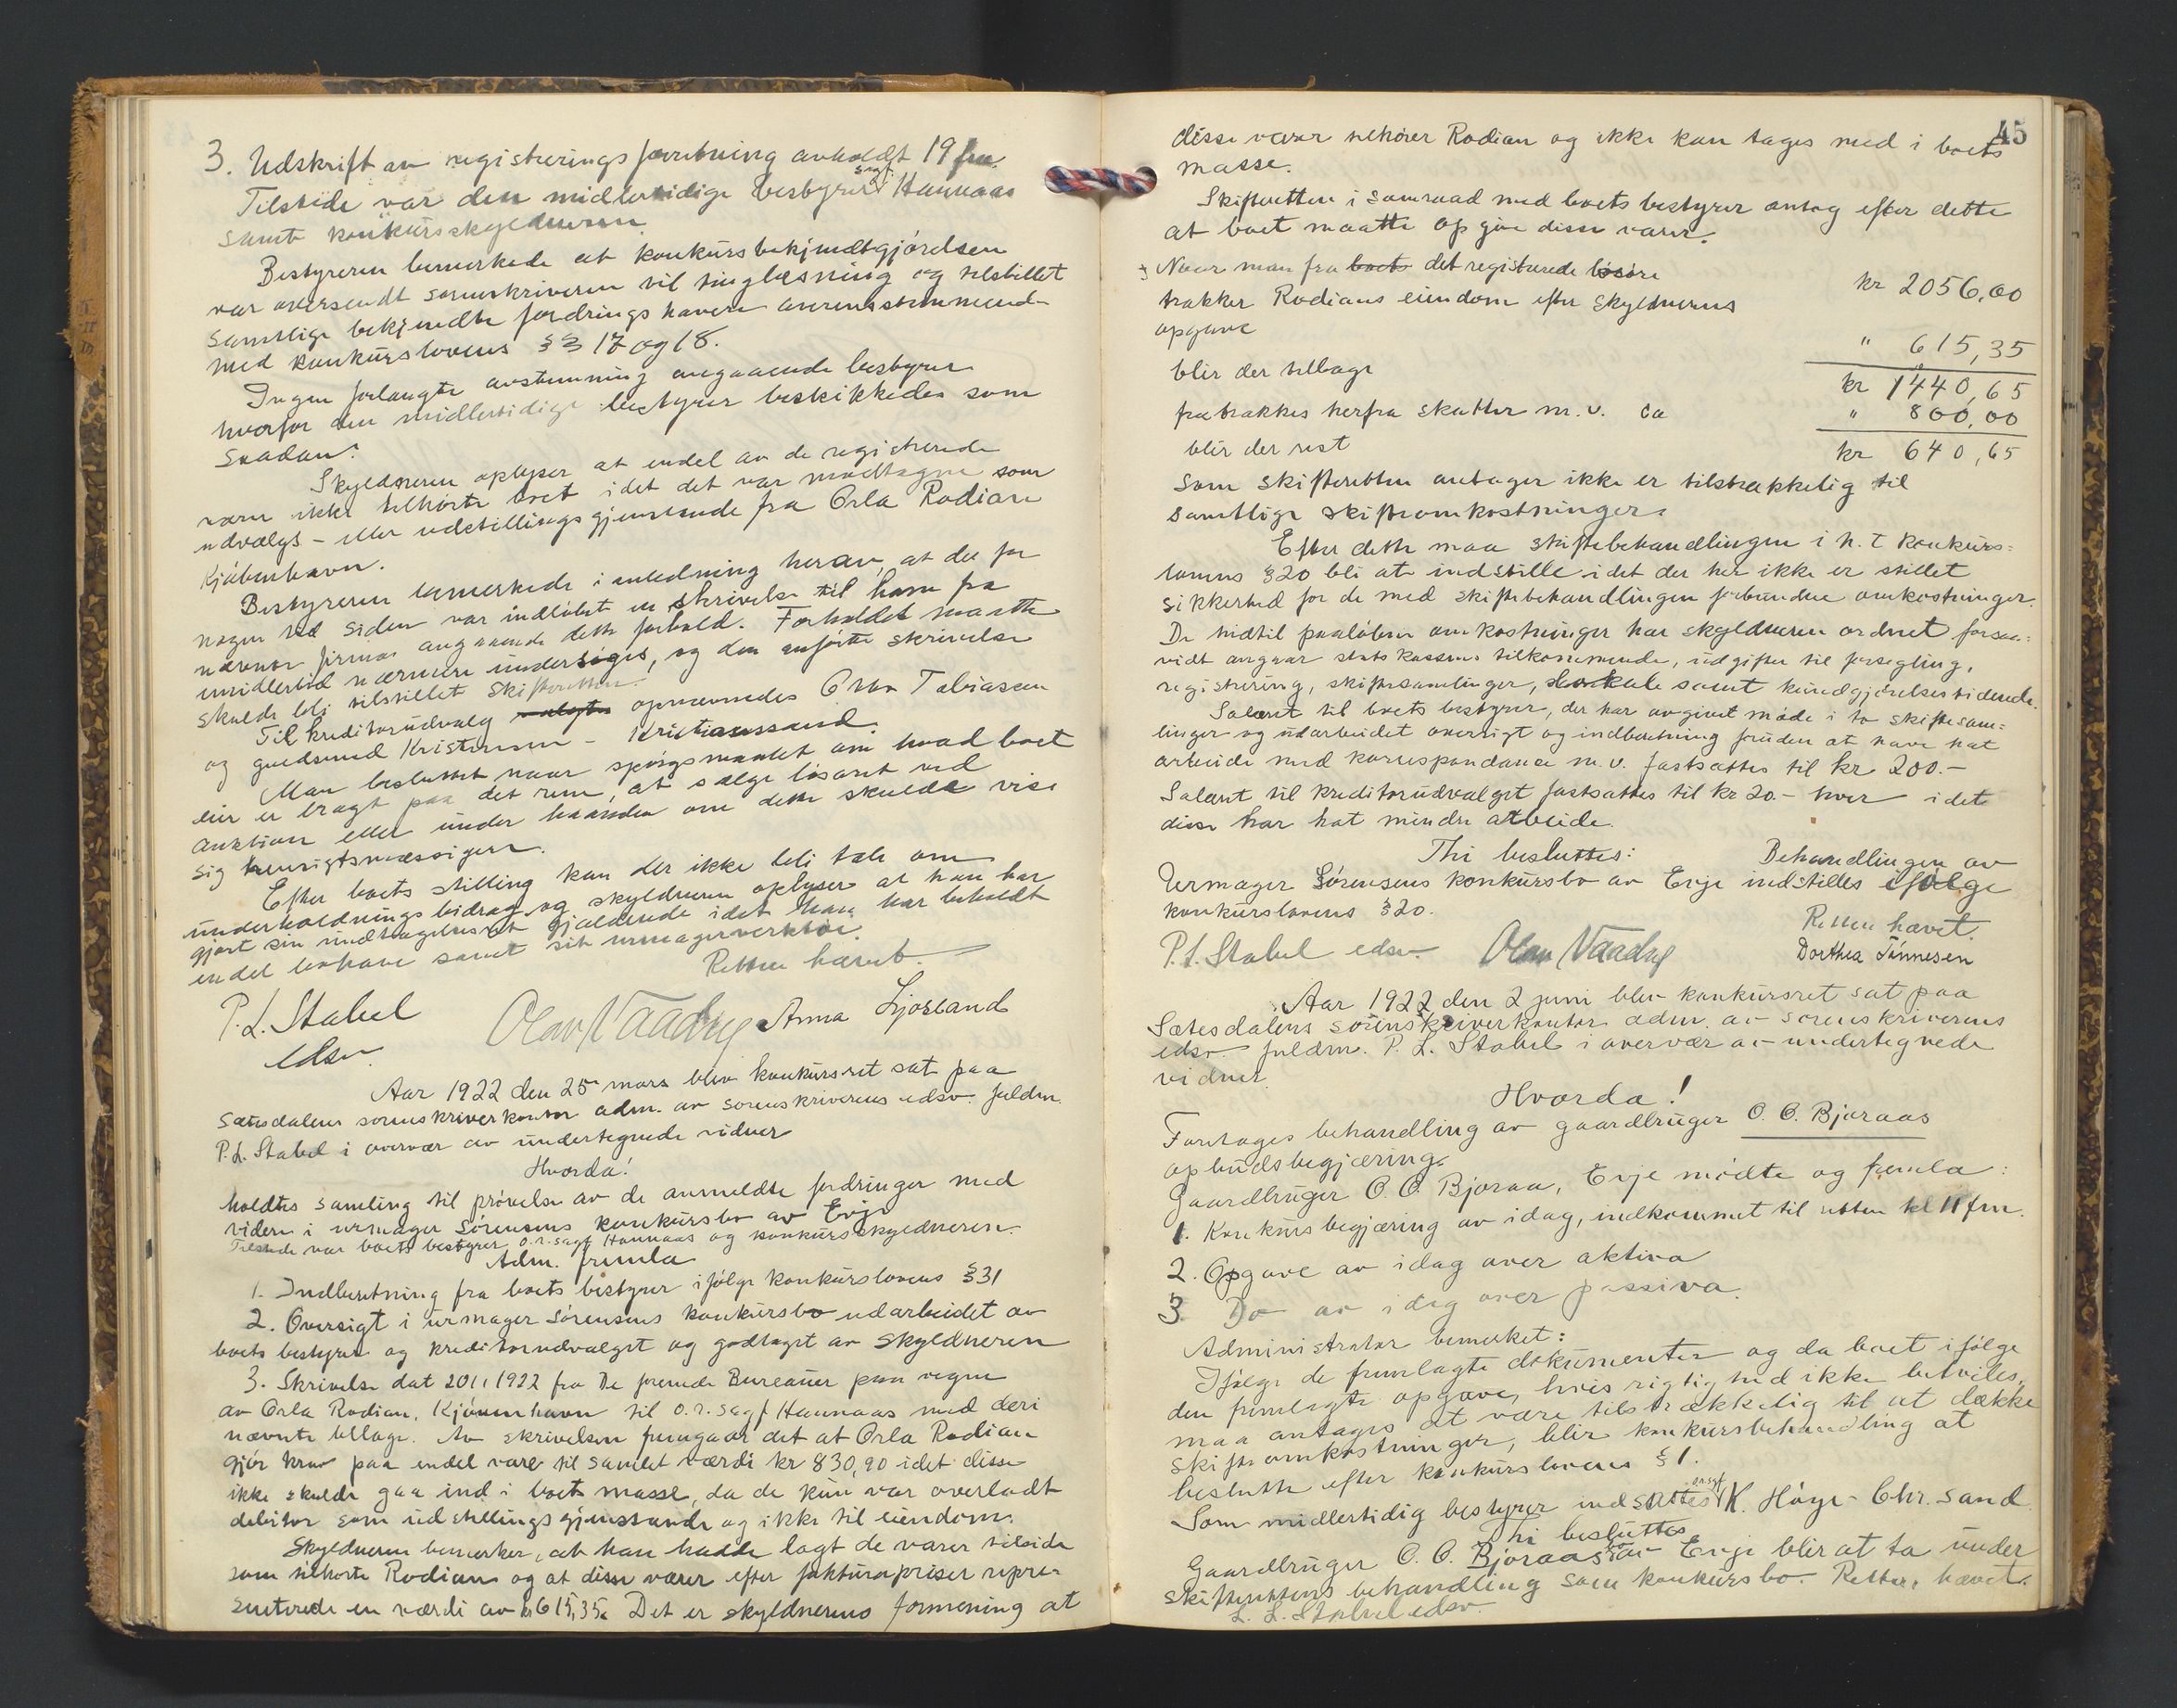 3. Udskrift av registreringsforretning avholdt 19 fm.
Tilstede var den midlertidige bestyrer sagf. Hannaas
samt konkursskyldneren.
Bestyreren bemerkede at konkursbekjendtgjørelsen
var oversendt sorenskriveren til tinglæsning og tilstillet
samtlige bekjendte fordringshavere overensstemmende
med konkurslovens §§ 17 og 18.
Ingen forlangte avstemning angaaende bestyrer
hvorfor den midlertidige bestyrer beskikkedes som
saadan.
Skyldneren oplyser at endel av de registrerede
varer ikke tilhørte boet idet det var mottagne som
udvalgs- eller udstillingsgjenstande fra Orla Rodian
Kjøbenhavn.
Bestyreren bemerkede i anledning herav, at der for
nogen tid siden var indløbet en skrivelse til ham fra
nævnte firma angaaende dette forhold. Forholdet maatte
imidlertid nærmere undersøges, og den anførte skrivelse
skulde bli tilstillet skifteretten.
Til kreditorudvalg valgtes opnævnedes Otto Tobiassen
og guldsmed Kristensen - Kristianssand.
Man besluttet naar spørgsmaalet om hvad boet
eier er bragt paa det rene, at sælge løsøret ved
auktion eller under haanden om dette skulde vise
sig hensigtsmæssigere.
Efter boets stilling kan der ikke bli tale om
underholdningsbidrag og skyldneren oplyser at han har
gjort sin undtagelsesret gjældende idet han har beholdt
endel bohave samt sit urmagerverktøi.
Retten hævet.
P. L. Stabel
edsv.
Olav Vaadny
Anna Ljosland
Aar 1922 den 25 mars blev konkursret sat paa
Sætesdalens sorenskriverkontor adm. av sorenskriverens edsv. fuldm.
P. L. Stabel i overvær av undertegnede vidner
Hvorda!
holdtes samling til prøvelse av de anmeldte fordringer med
videre i urmager Sørensens konkursbo av Evje
Tilstede var boets bestyrer o.r.sagf Hannaas og konkursskyldneren.
Adm. fremla
1. Indberetning fra boets bestyrer ifølge konkurslovens §31
2. Oversigt i urmager Sørensens konkursbo udarbeidet av
boets bestyrer og kreditorudvalget og godtaget av skyldneren
3. Skrivelse dat 20/1 1922 fra De forenede Bureauer paa vegne
av Orla Rodian, Kjøbenhavn til o.r.sagf Hannaas med deri
nævnte bilage. Av skrivelsen fremgaar det at Orla Rodian
gjør krav paa endel varer til samlet værdi kr 830,90 idet disse
ikke skulde gaa ind i boets masse, da de kun var overladt
debitor som udstillingsgjenstande og ikke til eiendom.
Skyldneren bemerker, at han hadde lagt de varer tilside
som tilhørte Rodian og at disse varer efter fakturapriser repre-
senterede en værdi av kr 615,35. Det er skyldnerens formening at
45
disse varer tilhører Rodian og ikke kan tages med i boets
masse.
Skifteretten i samraad med boets bestyrer antog efter dette
at boet maatte opgive disse varer.
Naar man fra boets det registrerede løsøre
kr 2056,00
trækker Rodians eiendom efter skyldnerens
opgave
" 615,35
blir der tilbage
kr 1440,65
fratrækkes herfra skatter m.v. ca
" 800,00
blir der rest
kr 640,65
som skifteretten antager ikke er tilstrækkelig til
samtlige skifteomkostninger.
Efter dette maa skiftebehandlingen i h. t konkurs-
lovens §20 bli at indstille idet der her ikke er stillet
sikkerhed for de med skiftebehandlingen forbundne omkostninger.
De hidtil paaløbne omkostninger har skyldneren ordnet forsaa-
vidt angaar statskassens tilkommende, udgifter til forsegling,
registrering, skiftesamlinger, samt kundgjørelsestidende.
Salæret til boets bestyrer, der har avgivet møde i to skiftesam-
linger og udarbeidet oversigt og indberetning foruden at have hat
arbeide med korrespondance m.v. fastsættes til kr 200.-
Salæret til kreditorudvalget fastsættes til kr 20.- hver idet
disse har hat mindre arbeide.
Thi besluttes:
Behandlingen av
Urmager Sørensens konkursbo av Evje indstilles ifølge
konkurslovens §20.
Retten hævet.
P. L. Stabel edsv. Olav Vaadny
Dorthea Tønnesen
Aar 1922 den 2 juni blev konkursret sat paa
Sætesdalens sorenskriverkontor adm. av sorenskriverens
edsv. fuldm. P. L. Stabel i overvær av undertegnede
vidner.
Hvorda!
Foretages behandling av gaardbruger O. O. Bjoraas
opbudsbegjæring.
Gaardbruger O. O. Bjoraa, Evje mødte og fremla:
1. Konkursbegjæring av idag, indkommet til retten kl 11 fm.
2. Opgave av idag over aktiva
3. Do av idag over passiva.
Administrator bemerket:
Ifølge de fremlagte dokumenter og da boet ifølge
den fremlagte opgave, hvis rigtighed ikke betviles,
maa antages at være tilstrækkelig til at dække
skifteomkostninger, blir konkursbehandling at
beslutte efter konkurslovens §1.
Som midlertidig bestyrer indsættes orsgf K. Høye - Chr.sand
Thi besluttes
Gaardbruger O. O. Bjoraas bo av Evje blir at ta under
skifterettens behandling som konkursbo. Retten hævet.
P. L. Stabel edsv.